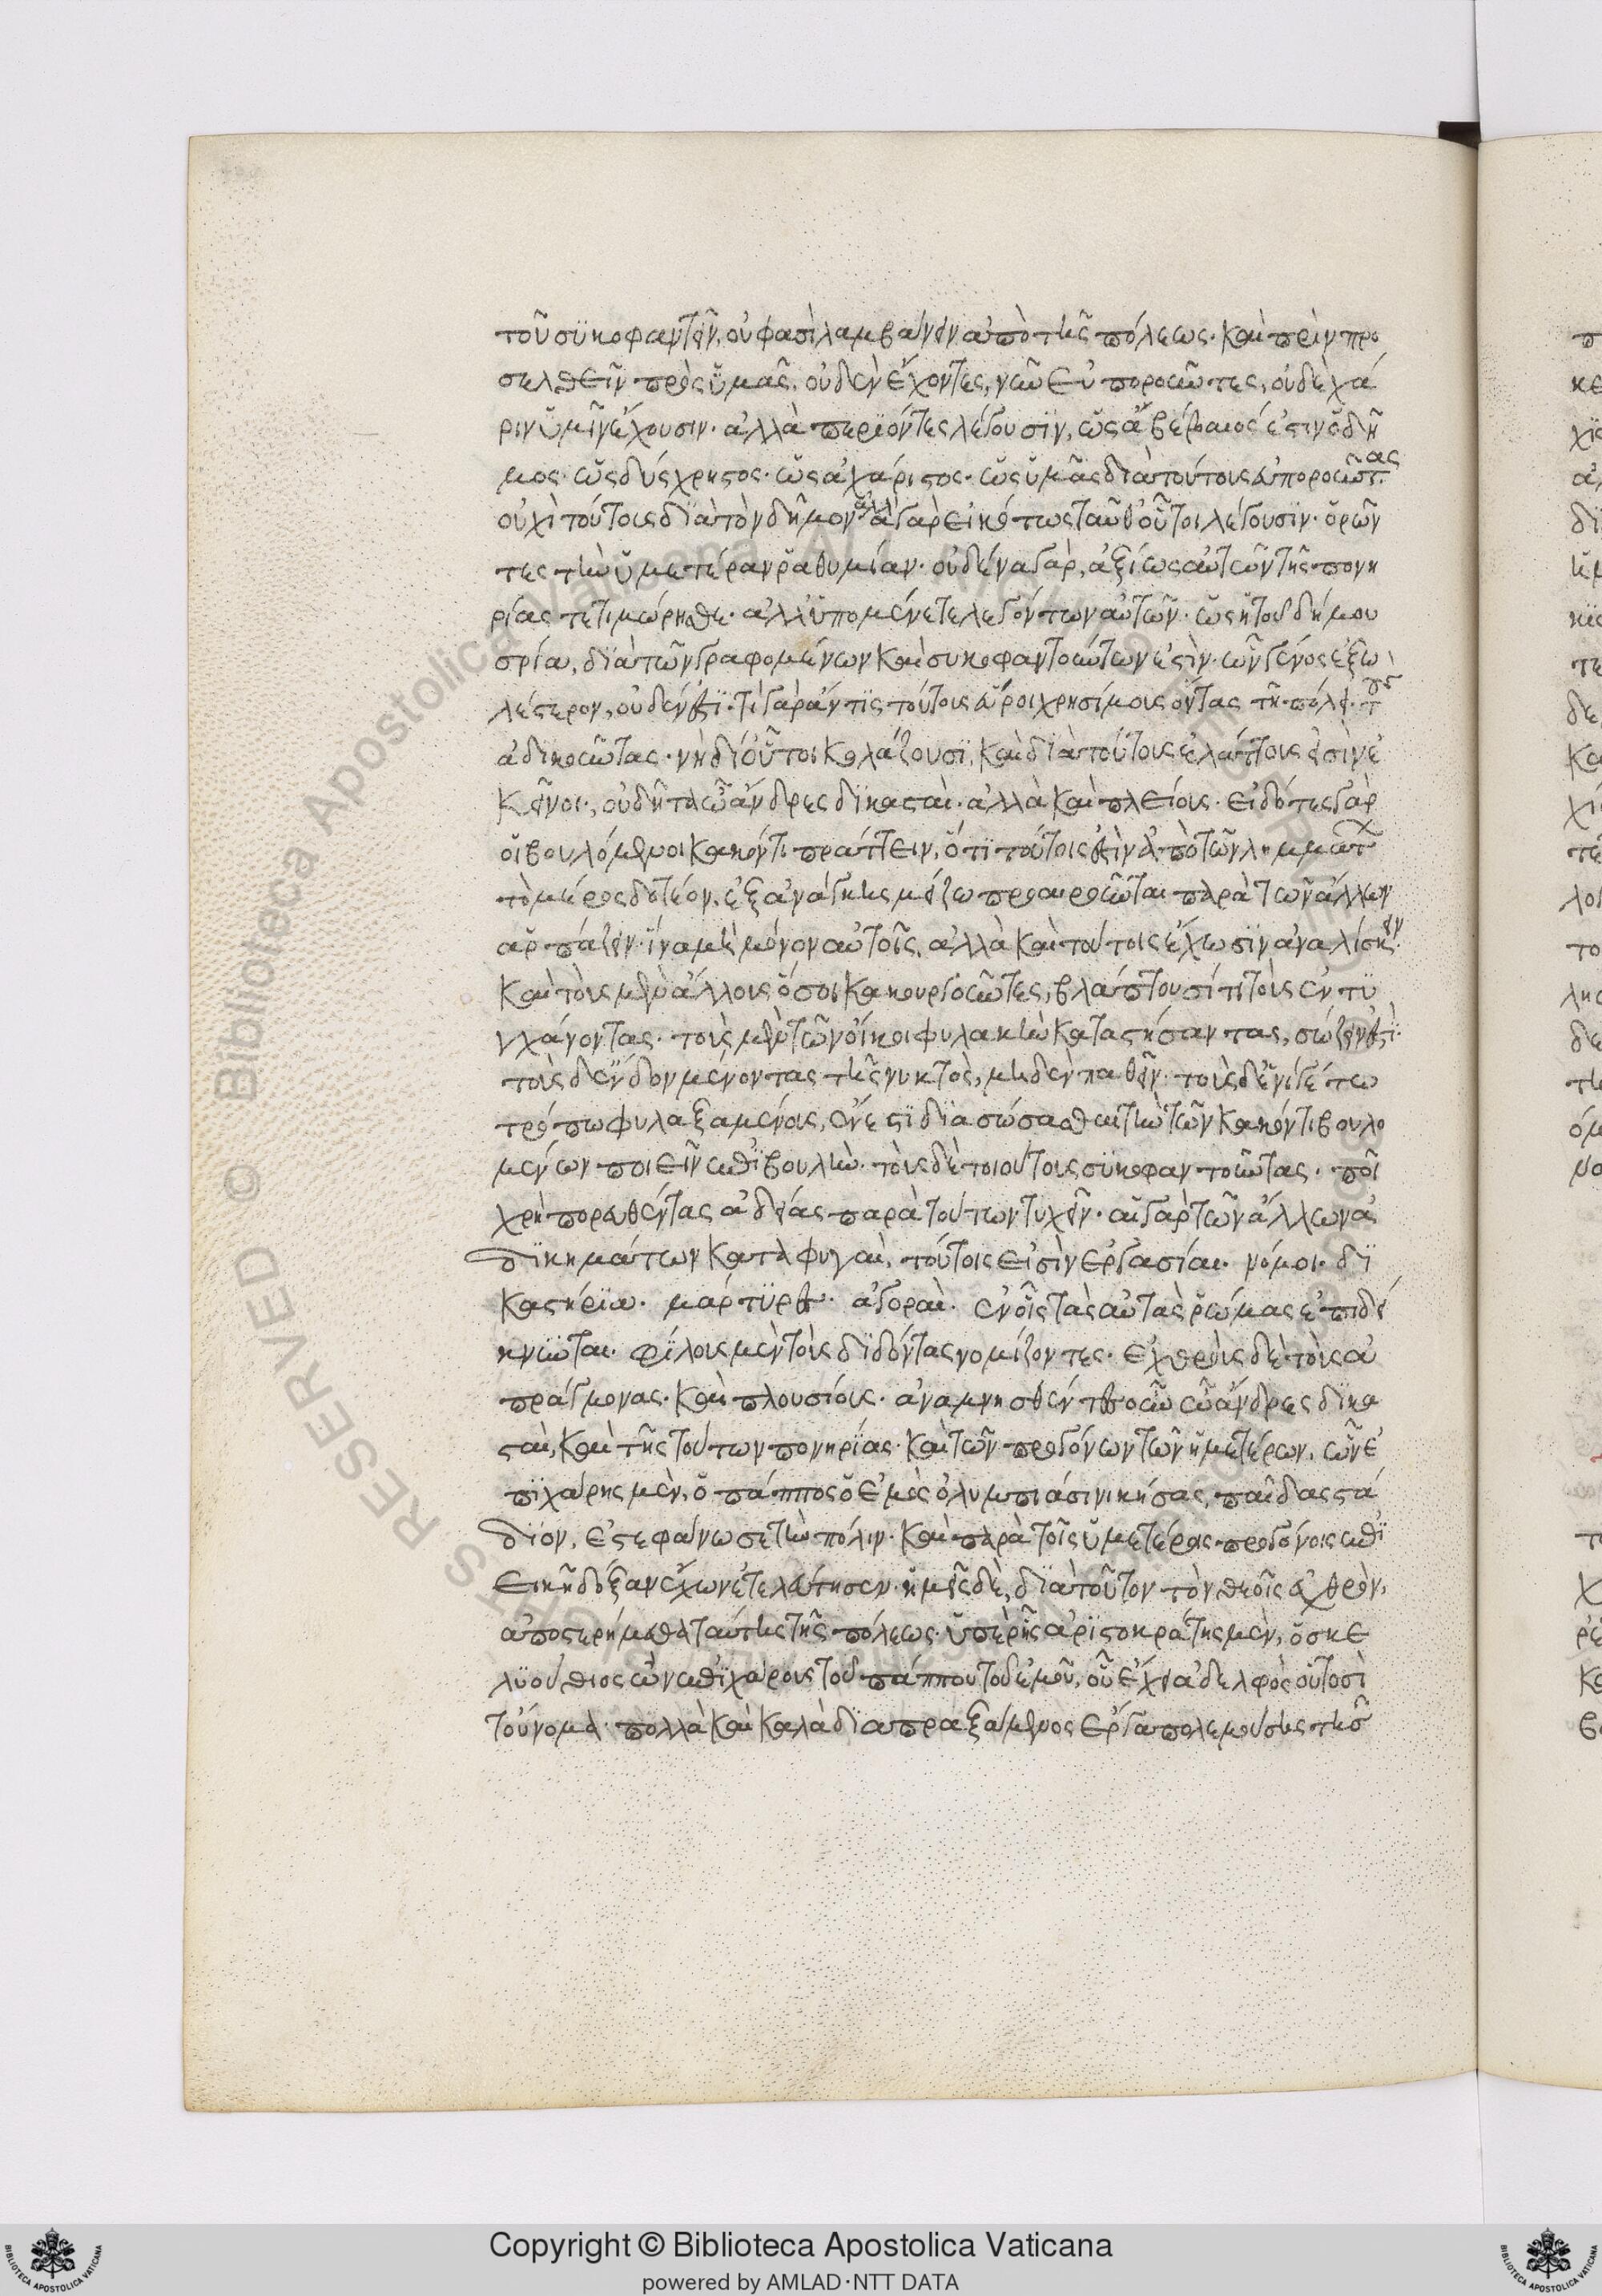 τοῦ συκοφαντεῖν, οὐ φασὶ λαμβάνειν ἀπὸ τῆς πόλεως· καὶ πρὶν προ
σελθεῖν πρὸς ὑμᾶς, οὐδὲν ἔχοντες, νῦν εὐποροῦντες, οὐδὲ χά
ριν ὑμῖν ἔχουσιν· ἀλλὰ περιϊόντες λέγουσιν, ὡς ἀβέβαιός ἐστιν ὁ δῆ
μος· ὡς δύσχρηστος· ὡς ἀχάριστος· ὡς ὑμᾶς διὰ τούτους εὐποροῦντας
οὐχὶ τούτους διὰ τὸν δῆμον ἀλλὰ γὰρ εἰκότως ταῦθ' οὗτοι λέγουσιν· ὁρῶν
τες τὴν ὑμετέραν ῥαθυμίαν· οὐδένα γὰρ, ἀξίως αὐτῶν τῆς πονη
ρίας τετιμώρησθε· ἀλλ' ὑπομένετε λεγόντων αὐτῶν· ὡς ἡ τοῦ δήμου
σρία, διὰ τῶν γραφομένων καὶ συκοφαντούντων ἐστὶν· ὧν γένος ἐξω
λέστερον, οὐδέν ἐστι· τί γὰρ ἄν τις τούτους εὕροι χρησίμους ὄντας τῇ πόλει· τοὺς
ἀδικοῦντας· νὴ δί' οὗτοι κολάζουσι, καὶ διὰ τούτους ἐλάττους εἰσὶν ἐ
κεῖνοι·, οὐ δῆτα ὦ ἄνδρες δικασταὶ· ἀλλὰ καὶ πλείους· εἰδότες γὰρ
οἱ βουλόμενοι κακόν τι πράττειν, ὅτι τούτοις ἐστὶν ἀπὸ τῶν λημμάτων
τὸ μέρος δοτέον, ἐξ ἀνάγκης μείζω προαιροῦνται παρὰ τῶν ἄλλων
ἁρπάζειν· ἵνα μὴ μόνον αὑτοῖς, ἀλλὰ καὶ τούτοις ἔχωσιν ἀναλίσκειν·
καὶ τοὺς μὲν ἄλλους ὅσοι κακουργοῦντες, βλάπτουσί τι τοὺς ἐντυ
γχάνοντας· τοὺς μὲν τῶν οἴκοι φυλακὴν καταστήσαντας, σώζειν ἐστὶ·
τοὺς δ' ἔνδον μένοντας τῆς νυκτὸς, μηδὲν παθεῖν· τοὺς δ' ἑνί γέ τῳ
τρόπῳ φυλαξαμένους, ἔνεστι διασώσασθαι τὴν τῶν κακόν τι βουλο
μένων ποιεῖν ἐπιβουλὴν· τοὺς δὲ τοιούτους συκοφαντοῦντας· ποῖ
χρὴ πορευθέντας ἀδείας παρὰ τούτων τυχεῖν· αἱ γὰρ τῶν ἄλλων ἀ
δικημάτων καταφυγαὶ, τούτοις εἰσὶν ἐργασίαι· νόμοι· δι
καστήρια· μάρτυρες· ἀγοραὶ· ἐν οἷς τὰς αὐτὰς ῥώμας ἐπιδεί
κνυνται· φίλους μὲν τοὺς διδόντας νομίζοντες· ἐχθροὺς δὲ τοὺς ἀ
πράγμονας· καὶ πλουσίους· ἀναμνησθέντες οὖν ὦ ἄνδρες δικα
σταὶ, καὶ τῆς τούτων πονηρίας· καὶ τῶν προγόνων τῶν ἡμετέρων, ὧν ἐ
πιχάρης μὲν, ὁ πάππος ὁ ἐμὸς ὀλυμπιάσι νικήσας, παῖδας στά
διον, ἐστεφάνωσε τὴν πόλιν· καὶ παρὰ τοῖς ὑμετέροις προγόνοις ἐπι
εικῆ δόξαν ἔχων ἐτελεύτησεν· ἡμεῖς δὲ, διὰ τοῦτον τὸν θεοῖς ἐχθρὸν,
ἀπεστερήμεθα ταύτης τῆς πόλεως· ὑπὲρ ἧς ἀριστοκράτης μὲν, ὁ σκε
λίου θεῖος ὢν ἐπιχάρους τοῦ πάππου τοῦ ἐμοῦ, οὗ ἔχει ἀδελφὸς οὑτοσὶ
τοὔνομα· πολλὰ καὶ καλὰ διαπραξάμενος ἔργα πολεμούσης τῆς